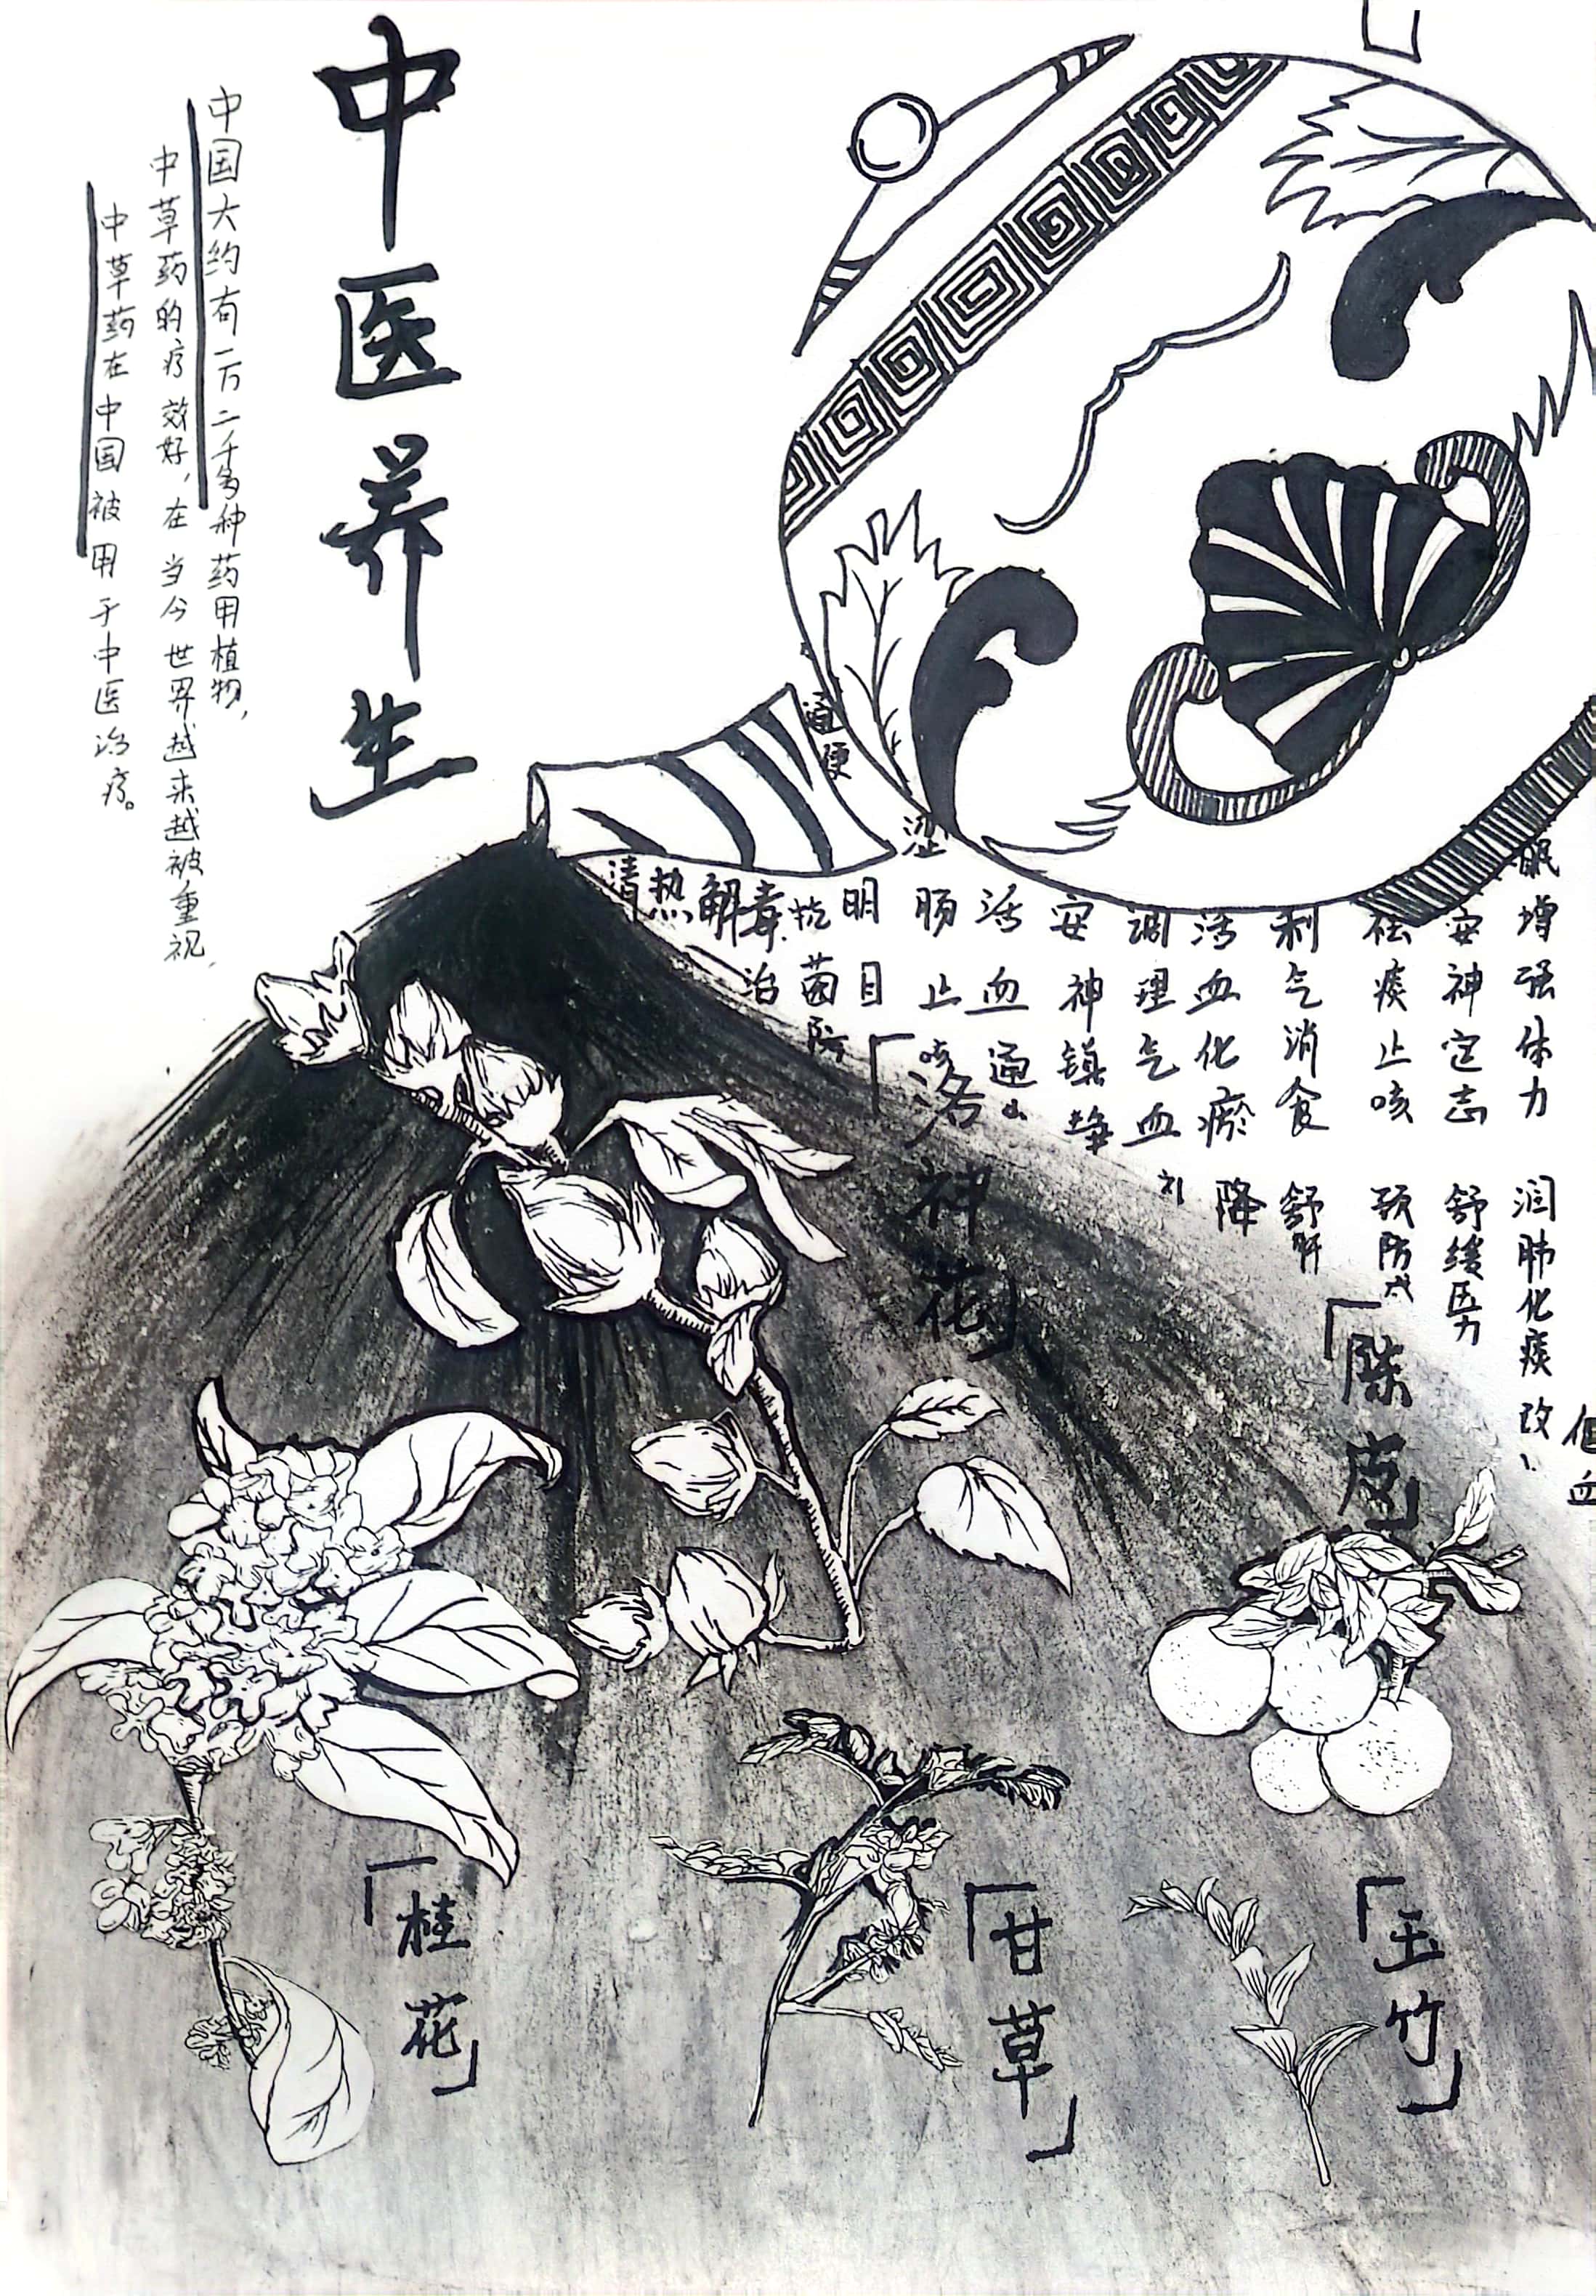 中医养生
中国大约有一万二千多种药用植物,
中草药的疗效好,在当今世界越来越被重视,
中草药在中国被用于中医治疗。
眠增强体力 润肺化痰 改
安神定志 舒缓压力
祛痰止咳 预防
利气消食 舒肝
活血化瘀 降
调理气血
安神镇静
活血通
涩肠止咳
明目
通便
抗菌防
清热解毒
治
「洛神花」
「陈皮」
「桂花」
「甘草」
「玉竹」